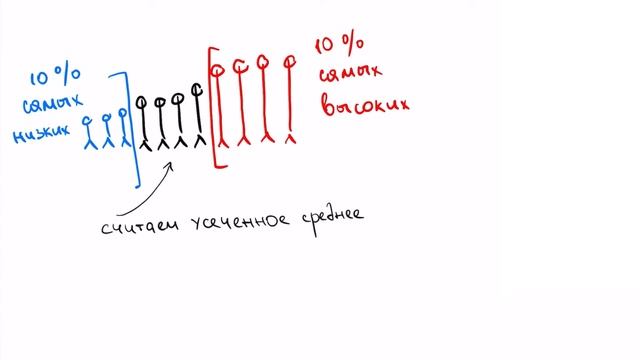 10 %
самых
низких
10 %
самых
высоких
считаем усеченное среднее